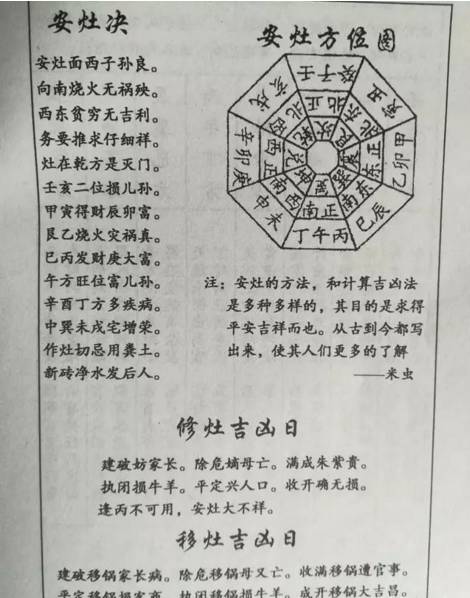 安灶决
安灶面西子孙良。
向南烧火无祸殃。
西东贫穷无吉利。
务要推求仔细祥。
灶在乾方是灭门。
壬亥二位损儿孙。
甲寅得财辰卯富。
艮乙烧火灾祸真。
巳丙发财庚大富。
午方旺位富儿孙。
辛酉丁方多疾病。
中巽未戌宅增荣。
作灶切忌用粪土。
新砖净水发后人。
安灶方位图
癸子壬
寅丑
乙卯甲
巳辰
丁午丙
中未
辛卯庚
亥戌
北正
北东
东正
南东
南正
南西
西正
北
坎
艮
震
巽
离
兑
乾
注：安灶的方法，和计算吉凶法
是多种多样的，其目的是求得
平安吉祥而也。从古到今都写
出来，使其人们更多的了解
——米虫
修灶吉凶日
建破妨家长。除危嫡母亡。满成朱紫贵。
执闭损牛羊。平定兴人口。收开确无损。
逢丙不可用，安灶大不祥。
移灶吉凶日
建破移锅家长病。除危移锅母又亡。收满移锅遭官事。
平定移锅损家畜。执闭移锅损牛羊。成开移锅大吉昌。